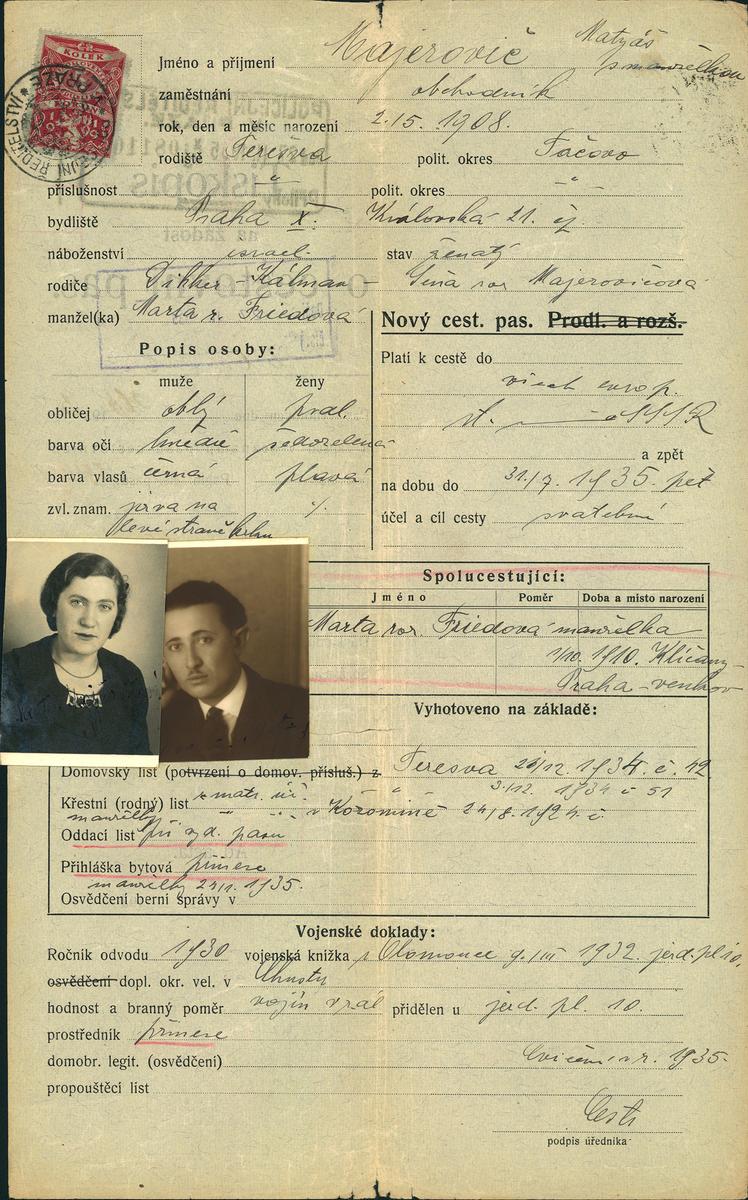 KOLEK
Jméno a příjmení Majerovič Matyáš
s manželkou
zaměstnání obchodník
rok, den a měsíc narození 2.15. 1908.
rodiště Teresva polit. okres Tačovo
příslušnost " polit. okres "
bydliště Praha X. Královská 21. čj.
náboženství israel. stav ženatý
rodiče Dikker-Kálman - Gína roz Majerovičová
manžel(ka) Marta r. Friedová
Nový cest. pas. Prodl. a rozš.
Popis osoby:
muže ženy
obličej oblý prav.
barva očí hnědé šedozelená
barva vlasů černá plavá
zvl. znam. jizva na %
levé straně krku
Platí k cestě do
všech evrop.
st. SSSR
a zpět
na dobu do 31./7. 1935. pět
účel a cíl cesty svatební
Spolucestující:
Jméno Poměr Doba a místo narození
Marta roz. Friedová manželka
1/10. 1910. Klíčany-
Praha-venkov
Vyhotoveno na základě:
Domovský list (potvrzení o domov. přísluš.) z Teresva 20/12. 1934. č. 42.
Křestní (rodný) list z matr. úř. " 3./12. 1934 č 51
manželky " " v Kozomíně 24/8. 1924. č.
Oddací list při vyd. pasu
Přihláška bytová přinese
manželky 24/1. 1935.
Osvědčení berní správy v
Vojenské doklady:
Ročník odvodu 1930 vojenská knížka z Olomouce 9./III 1932. jezd. pl 10.
osvědčení dopl. okr. vel. v Chusty
hodnost a branný poměr vojín v zál přidělen u jezd. pl. 10.
prostředník přinese
domobr. legit. (osvědčení) Cvičení v r. 1935.
propouštěcí list
podpis úředníka